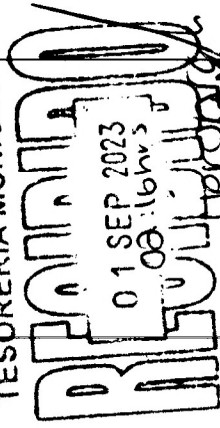 TESORERIA
RECIBIDO
01 SEP 2023
02:16hrs